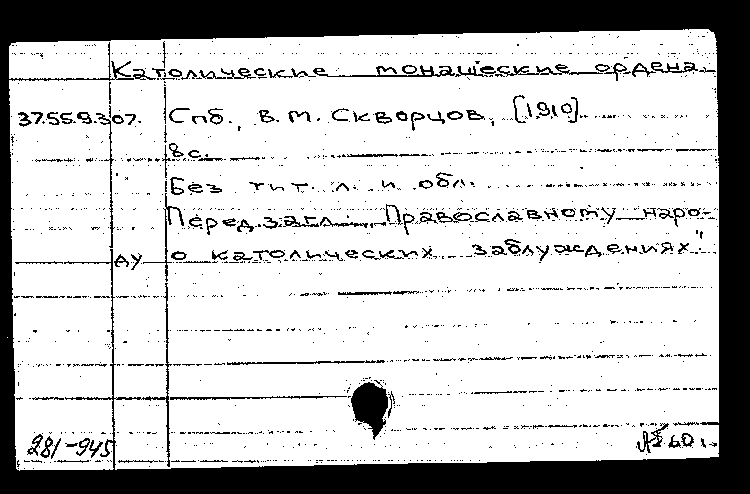 Католические монашеские ордена.
37.55.9.307. Спб., В. М. Скворцов, [1910].
8 с.
Без тит. л. и обл.
Перед загл.: "Православному наро-
ду о католических заблуждениях".
281-945